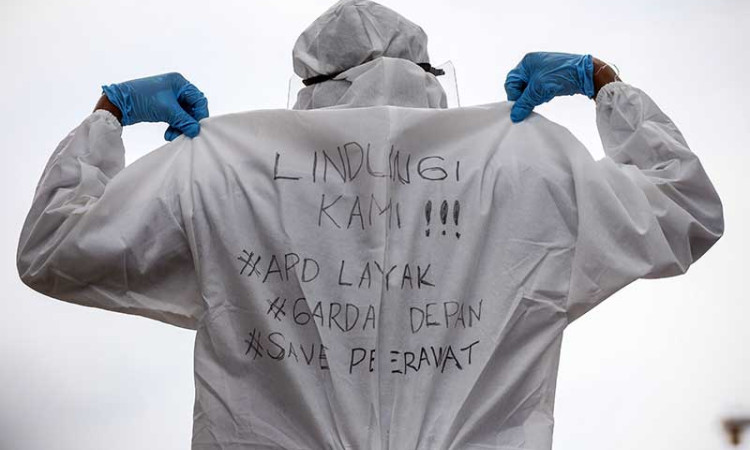 LINDUNGI
KAMI !!!
#APD LAYAK
#GARDA DEPAN
#SAVE PERAWAT